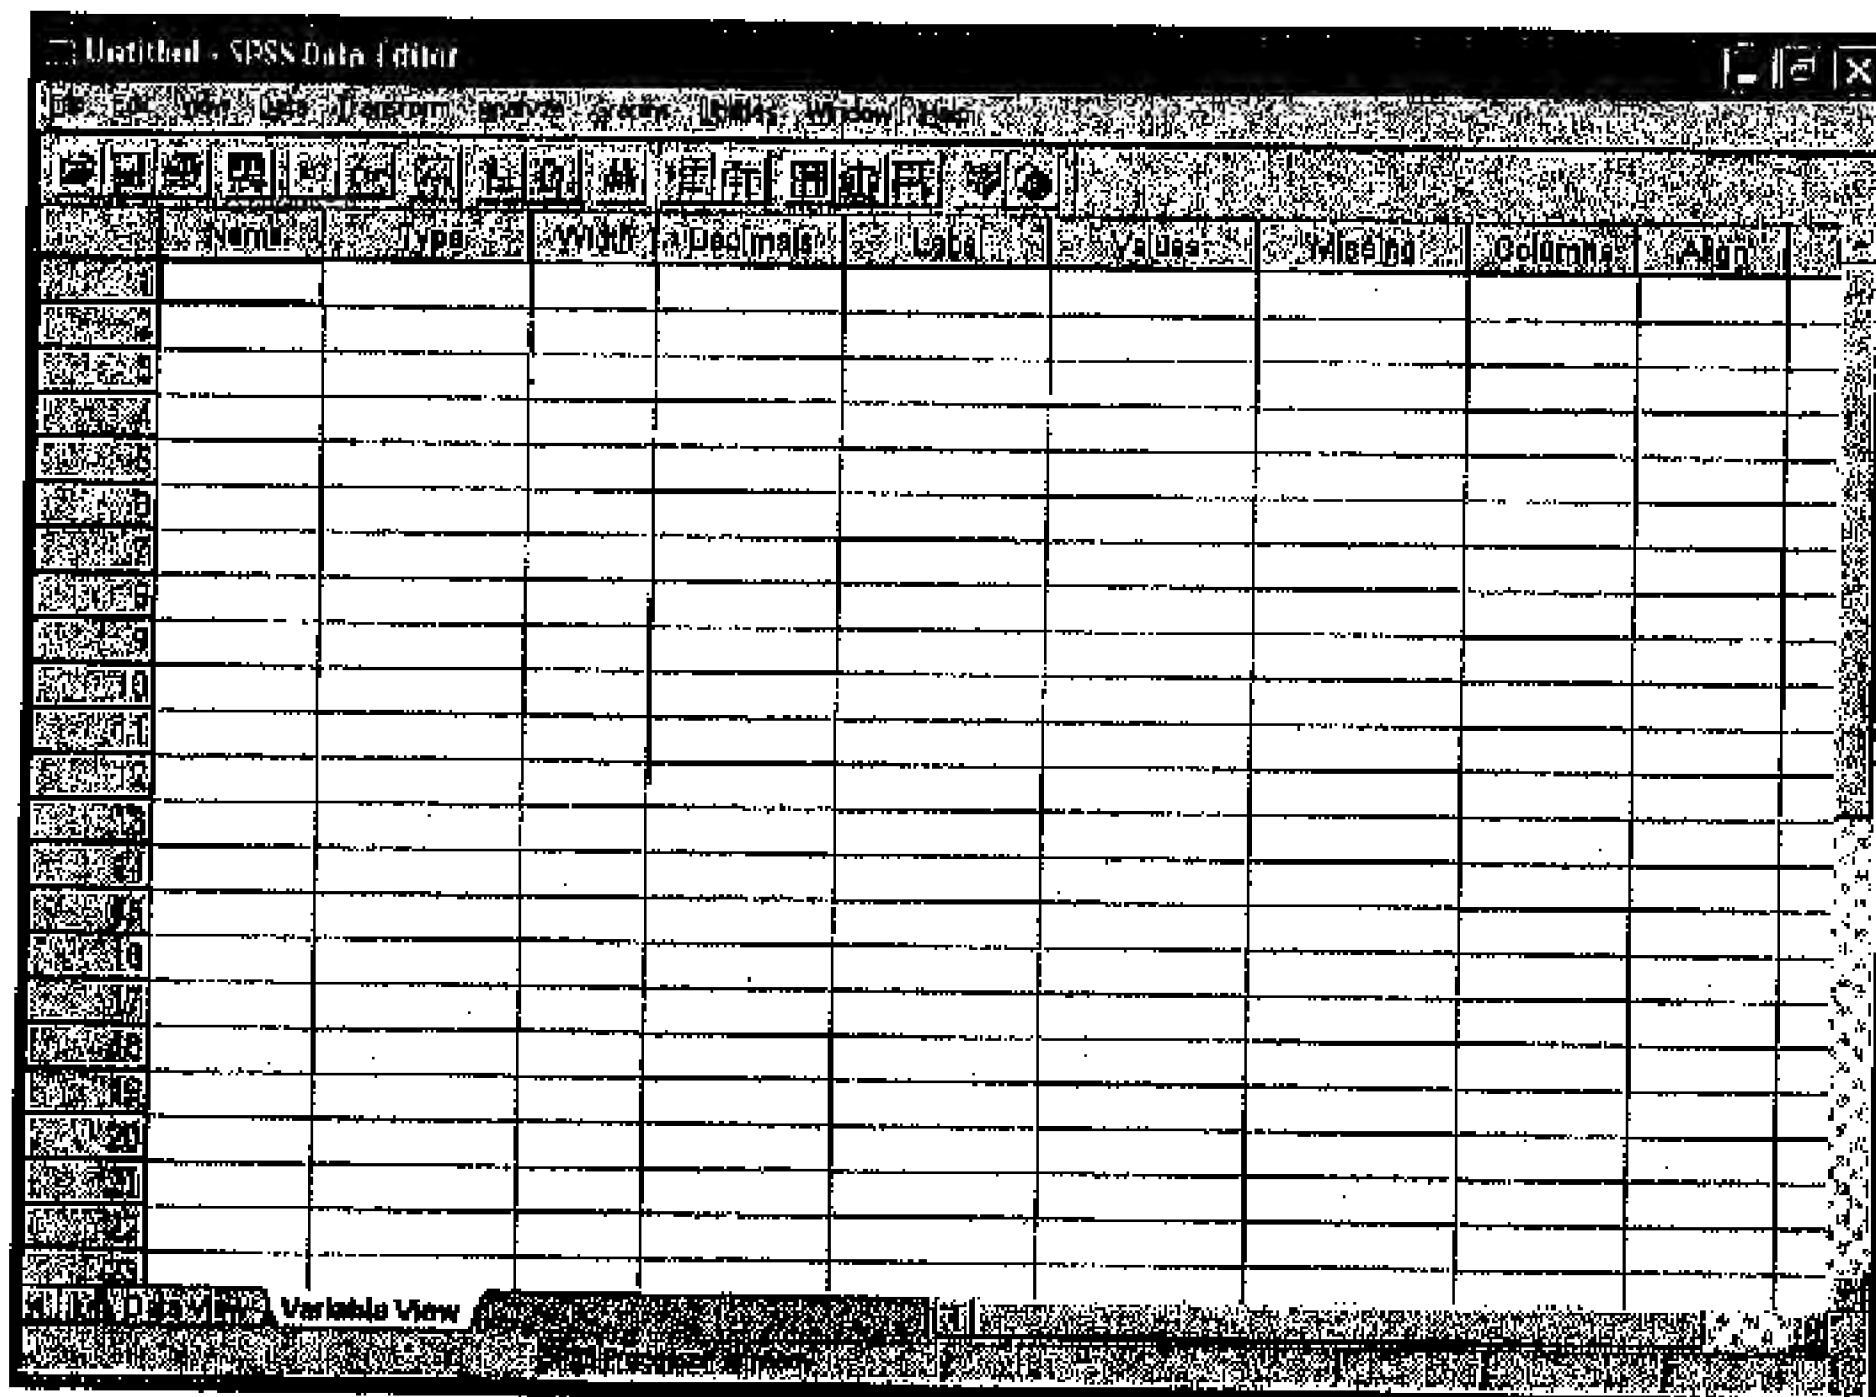 Untitled - SPSS Data Editor
File Edit View Data Transform Analyze Graphs Utilities Window Help
Name Type Width Decimals Label Values Missing Columns Align
1
2
3
4
5
6
7
8
9
10
11
12
13
14
15
16
17
18
19
20
21
22
23
Data View Variable View